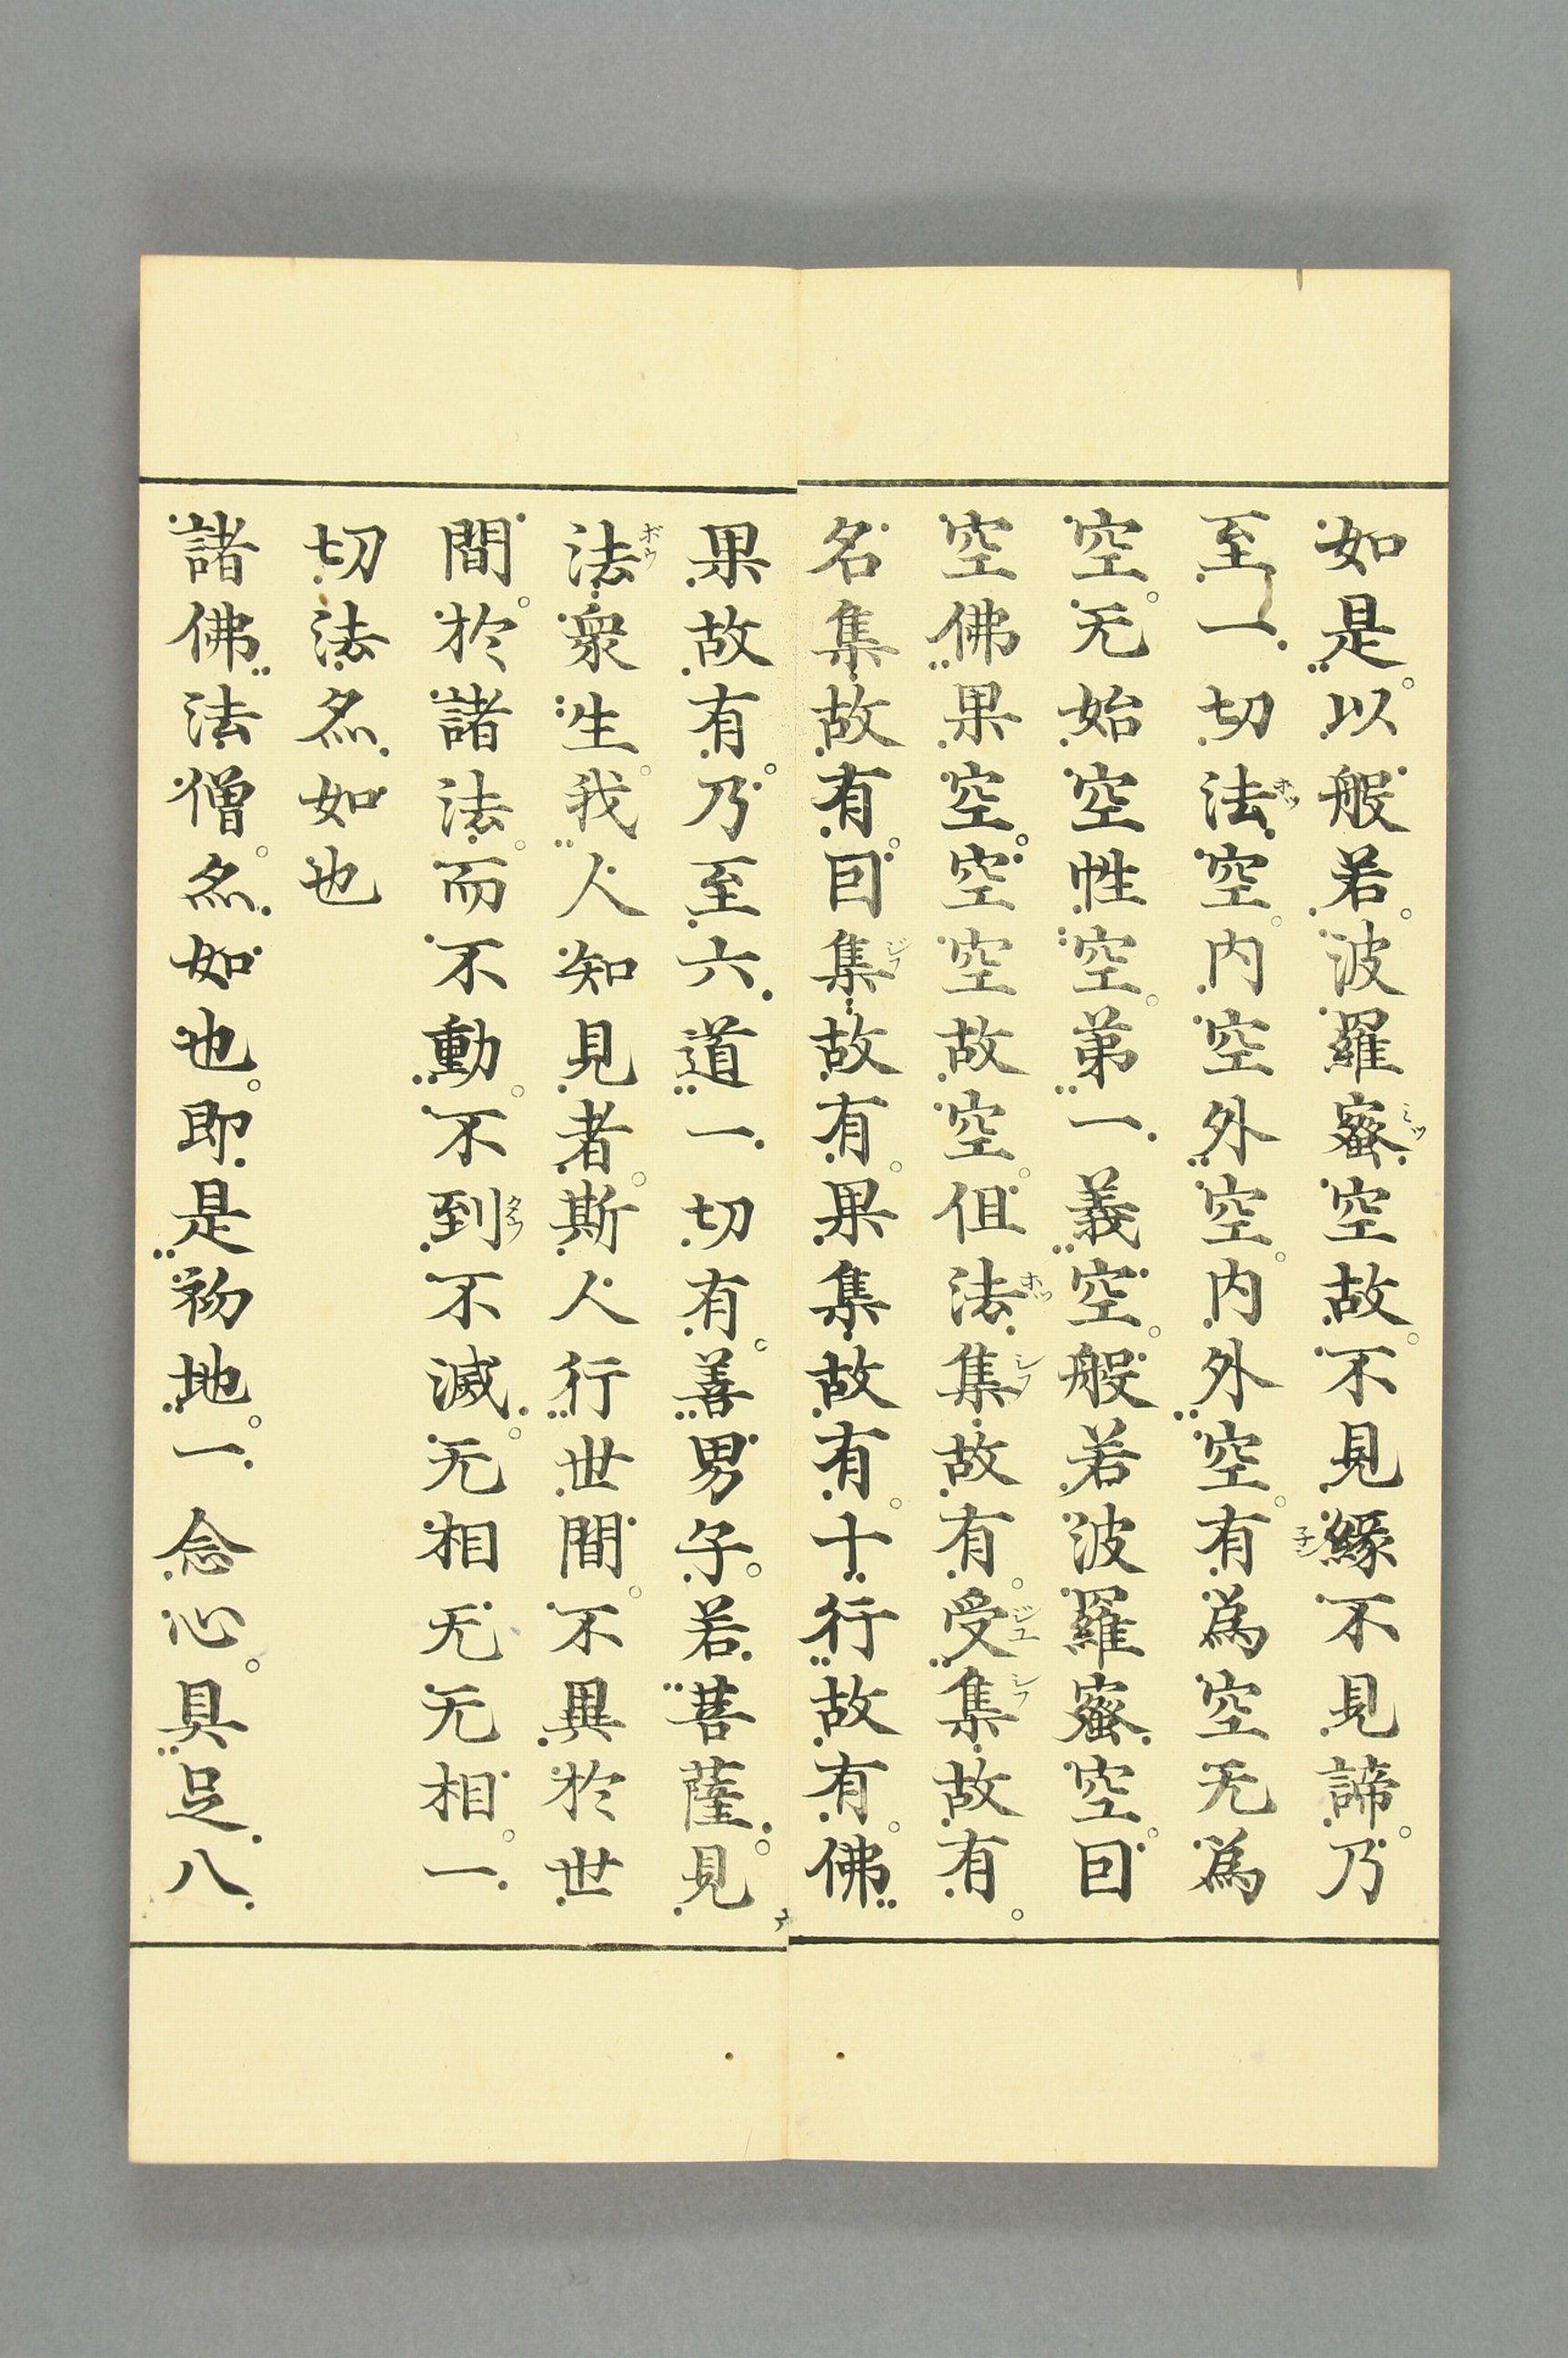 如是以般若波羅蜜空故不見緣不見諦乃
至一切法空内空外空内外空有為空无為
空无始空性空苐一義空般若波羅蜜空囙
空佛果空空空故空但法集故有受集故有
名集故有囙集故有果集故有十行故有佛
果故有乃至六道一切有善男子若菩薩見
法衆生我人知見者斯人行世間不異於世
間於諸法而不動不到不滅无相无无相一
切法尒如也
諸佛法僧尒如也即是初地一念心具足八